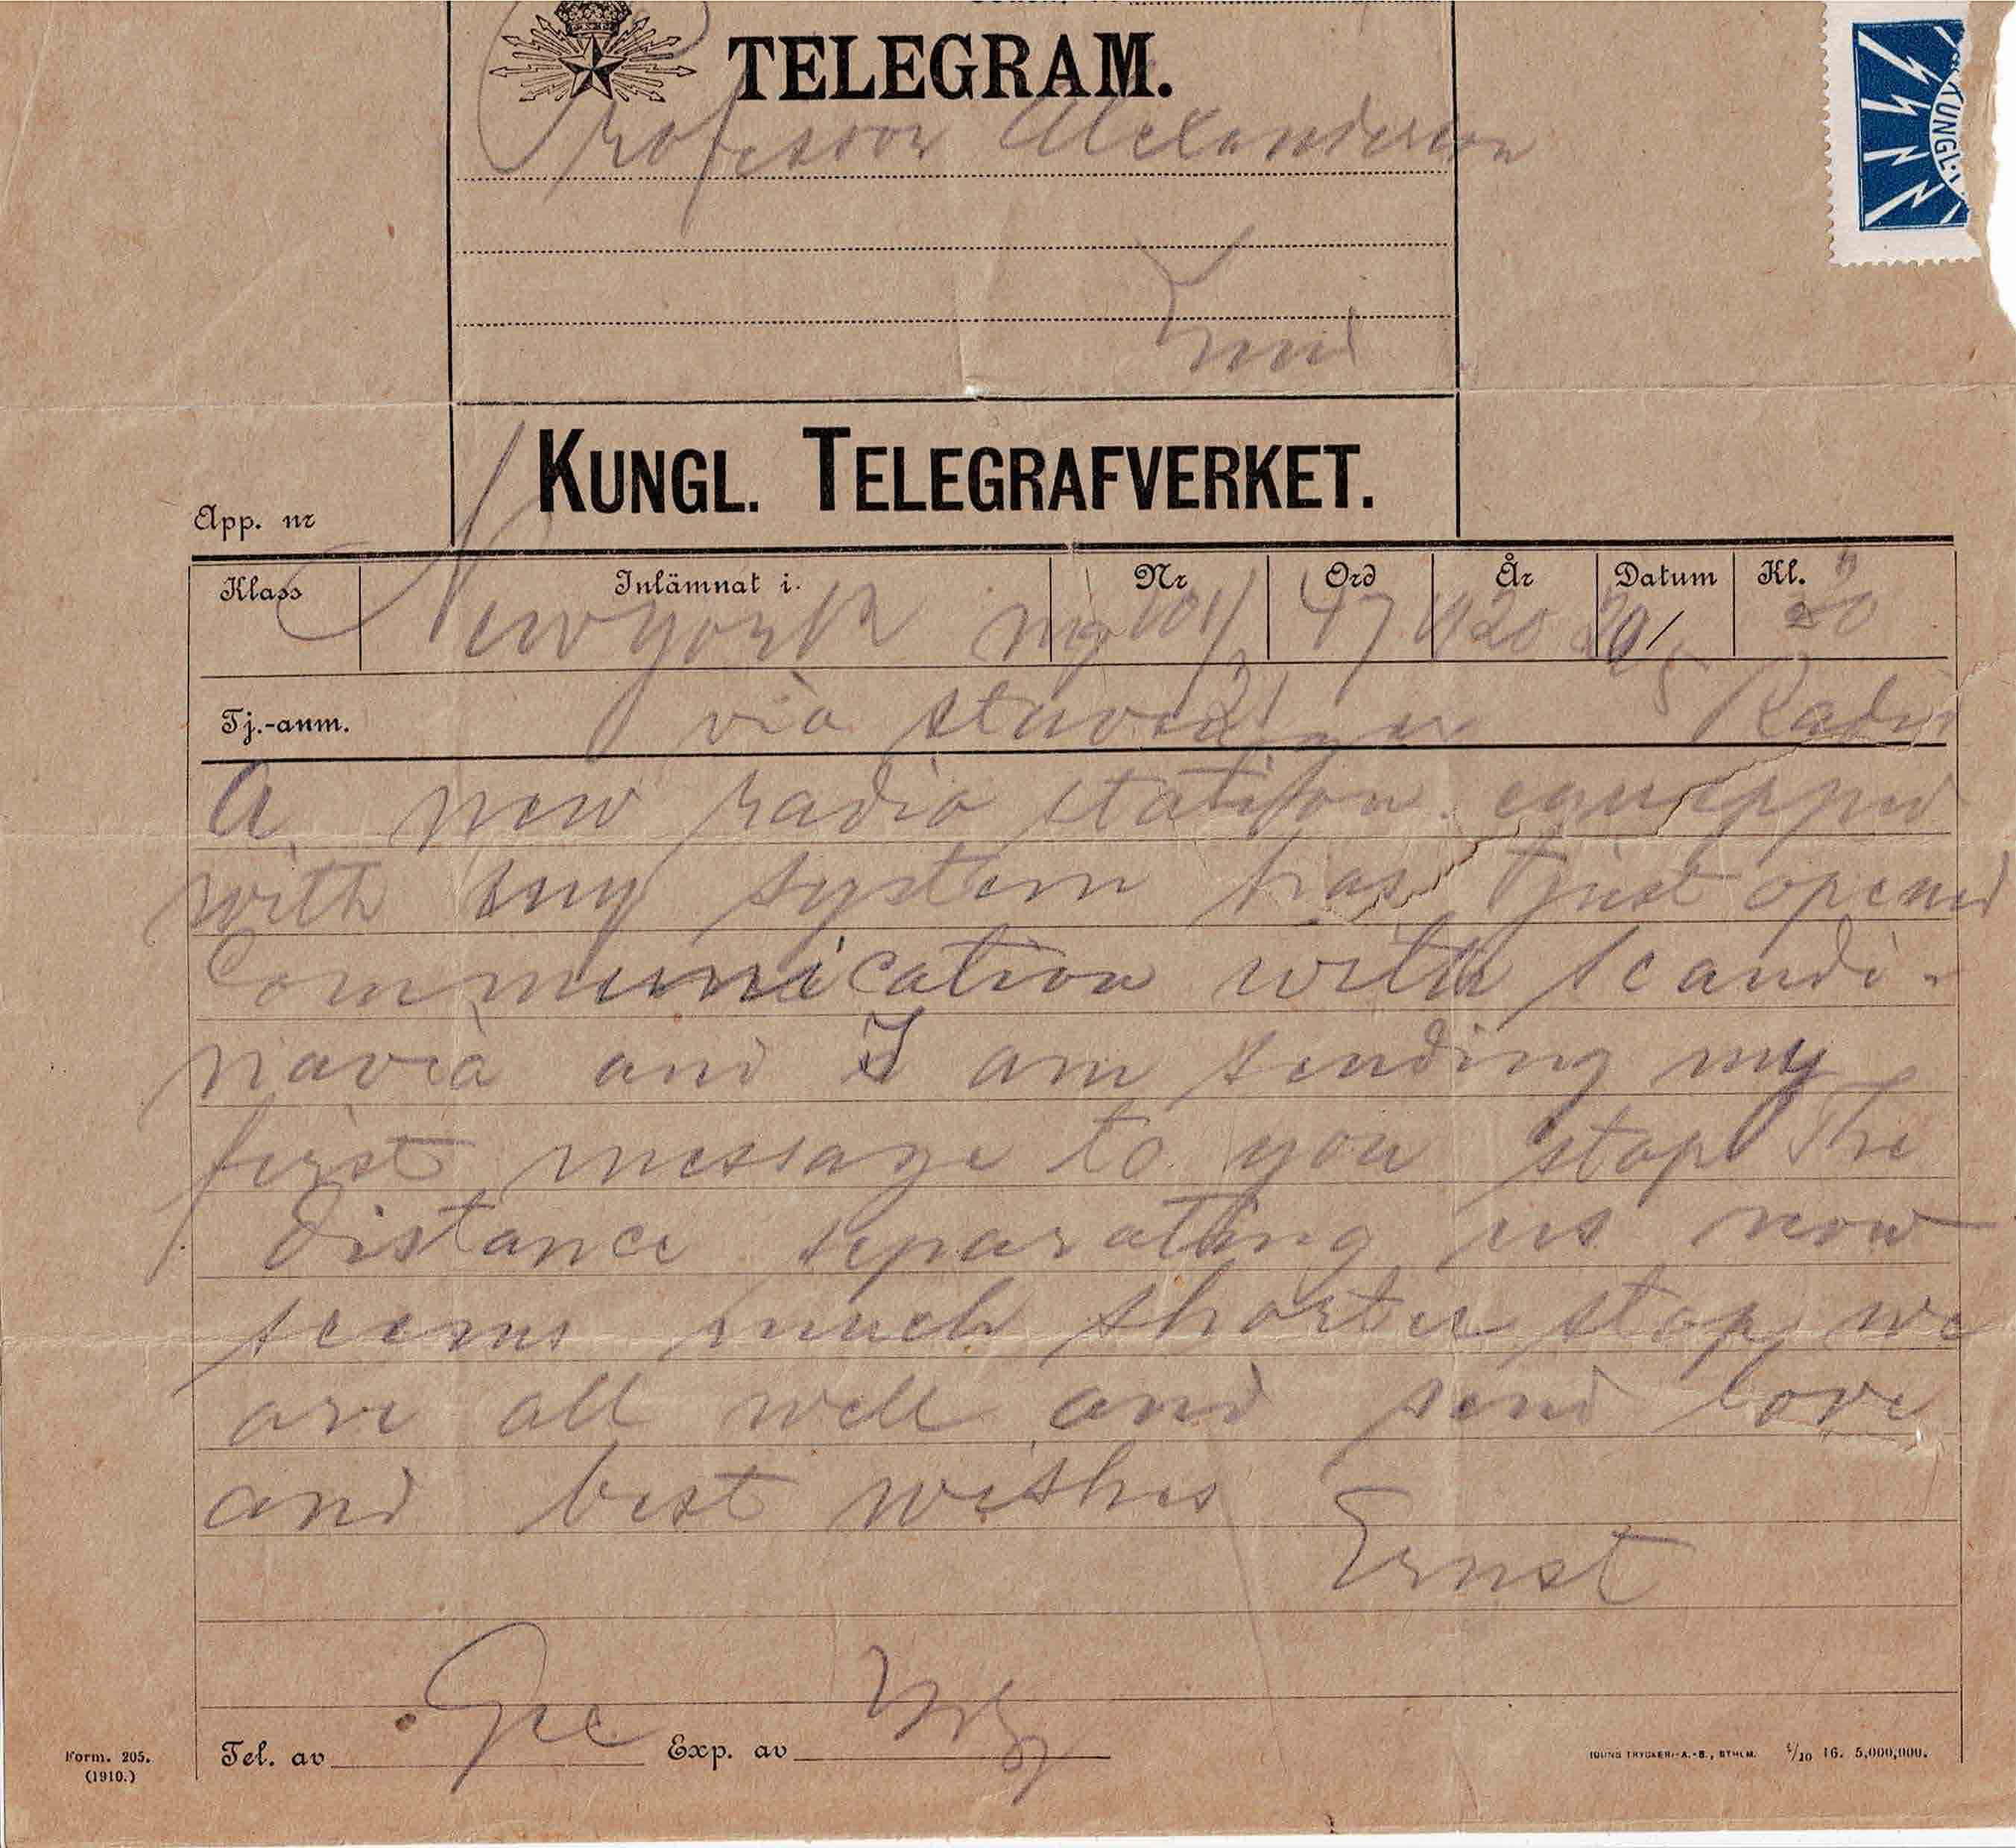 TELEGRAM.
Professor Alexanderson
Lund
KUNGL. TELEGRAFVERKET.
App. nr
Klass Inlämnat i. Nr Ord År Datum Kl.
Newyork 47 1920 20/5
Tj.-anm. via stavanger Radio
A new radio station equipped
with my system has just opened
Communication with scandi-
navia and I am sending my
first message to you stop The
distance separating us now
seems much shorter stop we
are all well and send love
and best wishes
Ernst
Tel. av Exp. av
Form. 205.
(1910.)
IDUNS TRYCKERI-A.-B., STHLM. 5/10 16. 5,000,000.
KUNGL. T